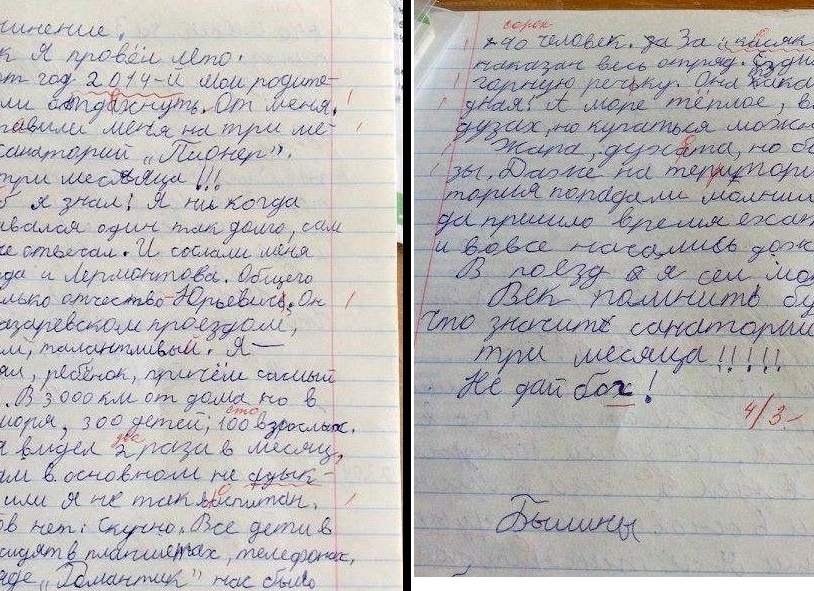 чинение.
к я провёл лето.
от год 2014-й мои родите-
ли отдахнуть. От меня.
равили меня на три ме-
санаторий „Пионер".
три месяца!!!
б я знал! Я ни когда
авался один так долго, сам
не отвечал. И сослали меня
да и Лермонтова. Общего
олько отчество Юрьевич. Он
азаревском проездом,
м, талантливый. Я—
ял, ребёнок, причём самый
. В 3000 км от дома но в
моря, 300 детей, 100 взрослых.
сто
я видел 2 раза в месяц,
два
ам в основном не
или я не так воспитан.
ов нет. Скучно. Все дети в
сидят в планшетах, телефонах,
яде „Романтик" нас было
сорок
40 человек. За „касяк
наказан весь отряд.
горную речьку. Она
дная! А море тёплое, в
дузах, но купаться можн
Жара, духота, но
зы. Даже на территори
тория попадали молнии
да пришло время
и вовсе начались дож
В поезд я сел
Век помнить бу
Что значит санаторий
три месяца!!!!!
Не дай бох!
4/3-
Былины